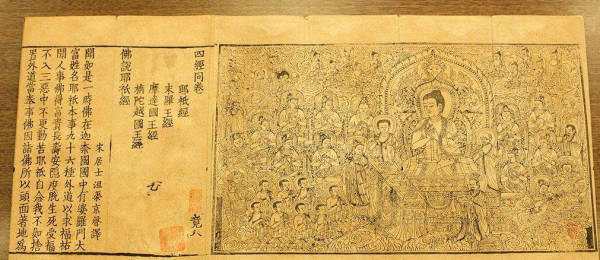 四經同卷
耶祇經
末羅王經
摩達國王經
旃陀越國王經
竟八
佛說耶祇經
宋居士沮渠京聲譯
聞如是一時佛在迦奈國國中有婆羅門大
富姓名耶祇本事九十六種外道以求福祐
聞人事佛得富貴長壽安隱度脫生死受福
不入三惡中不更勤苦耶祇自念我不如捨
置外道當奉事佛因詣佛所以頭面著地為